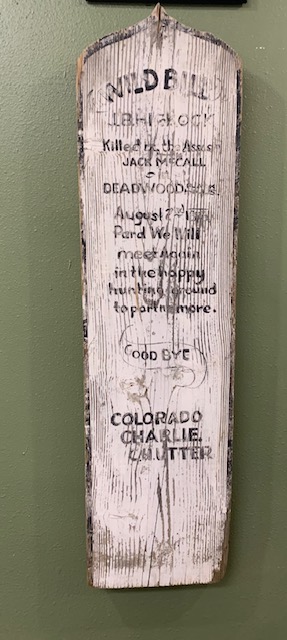 WILD BILL
J.B.HICKOCK
Killed by the Assassin
JACK McCALL
DEADWOOD
August 2nd
Pard We Will
meet Again
in the happy
hunting ground
to part no more.
GOOD BYE
COLORADO
CHARLIE
UTTER